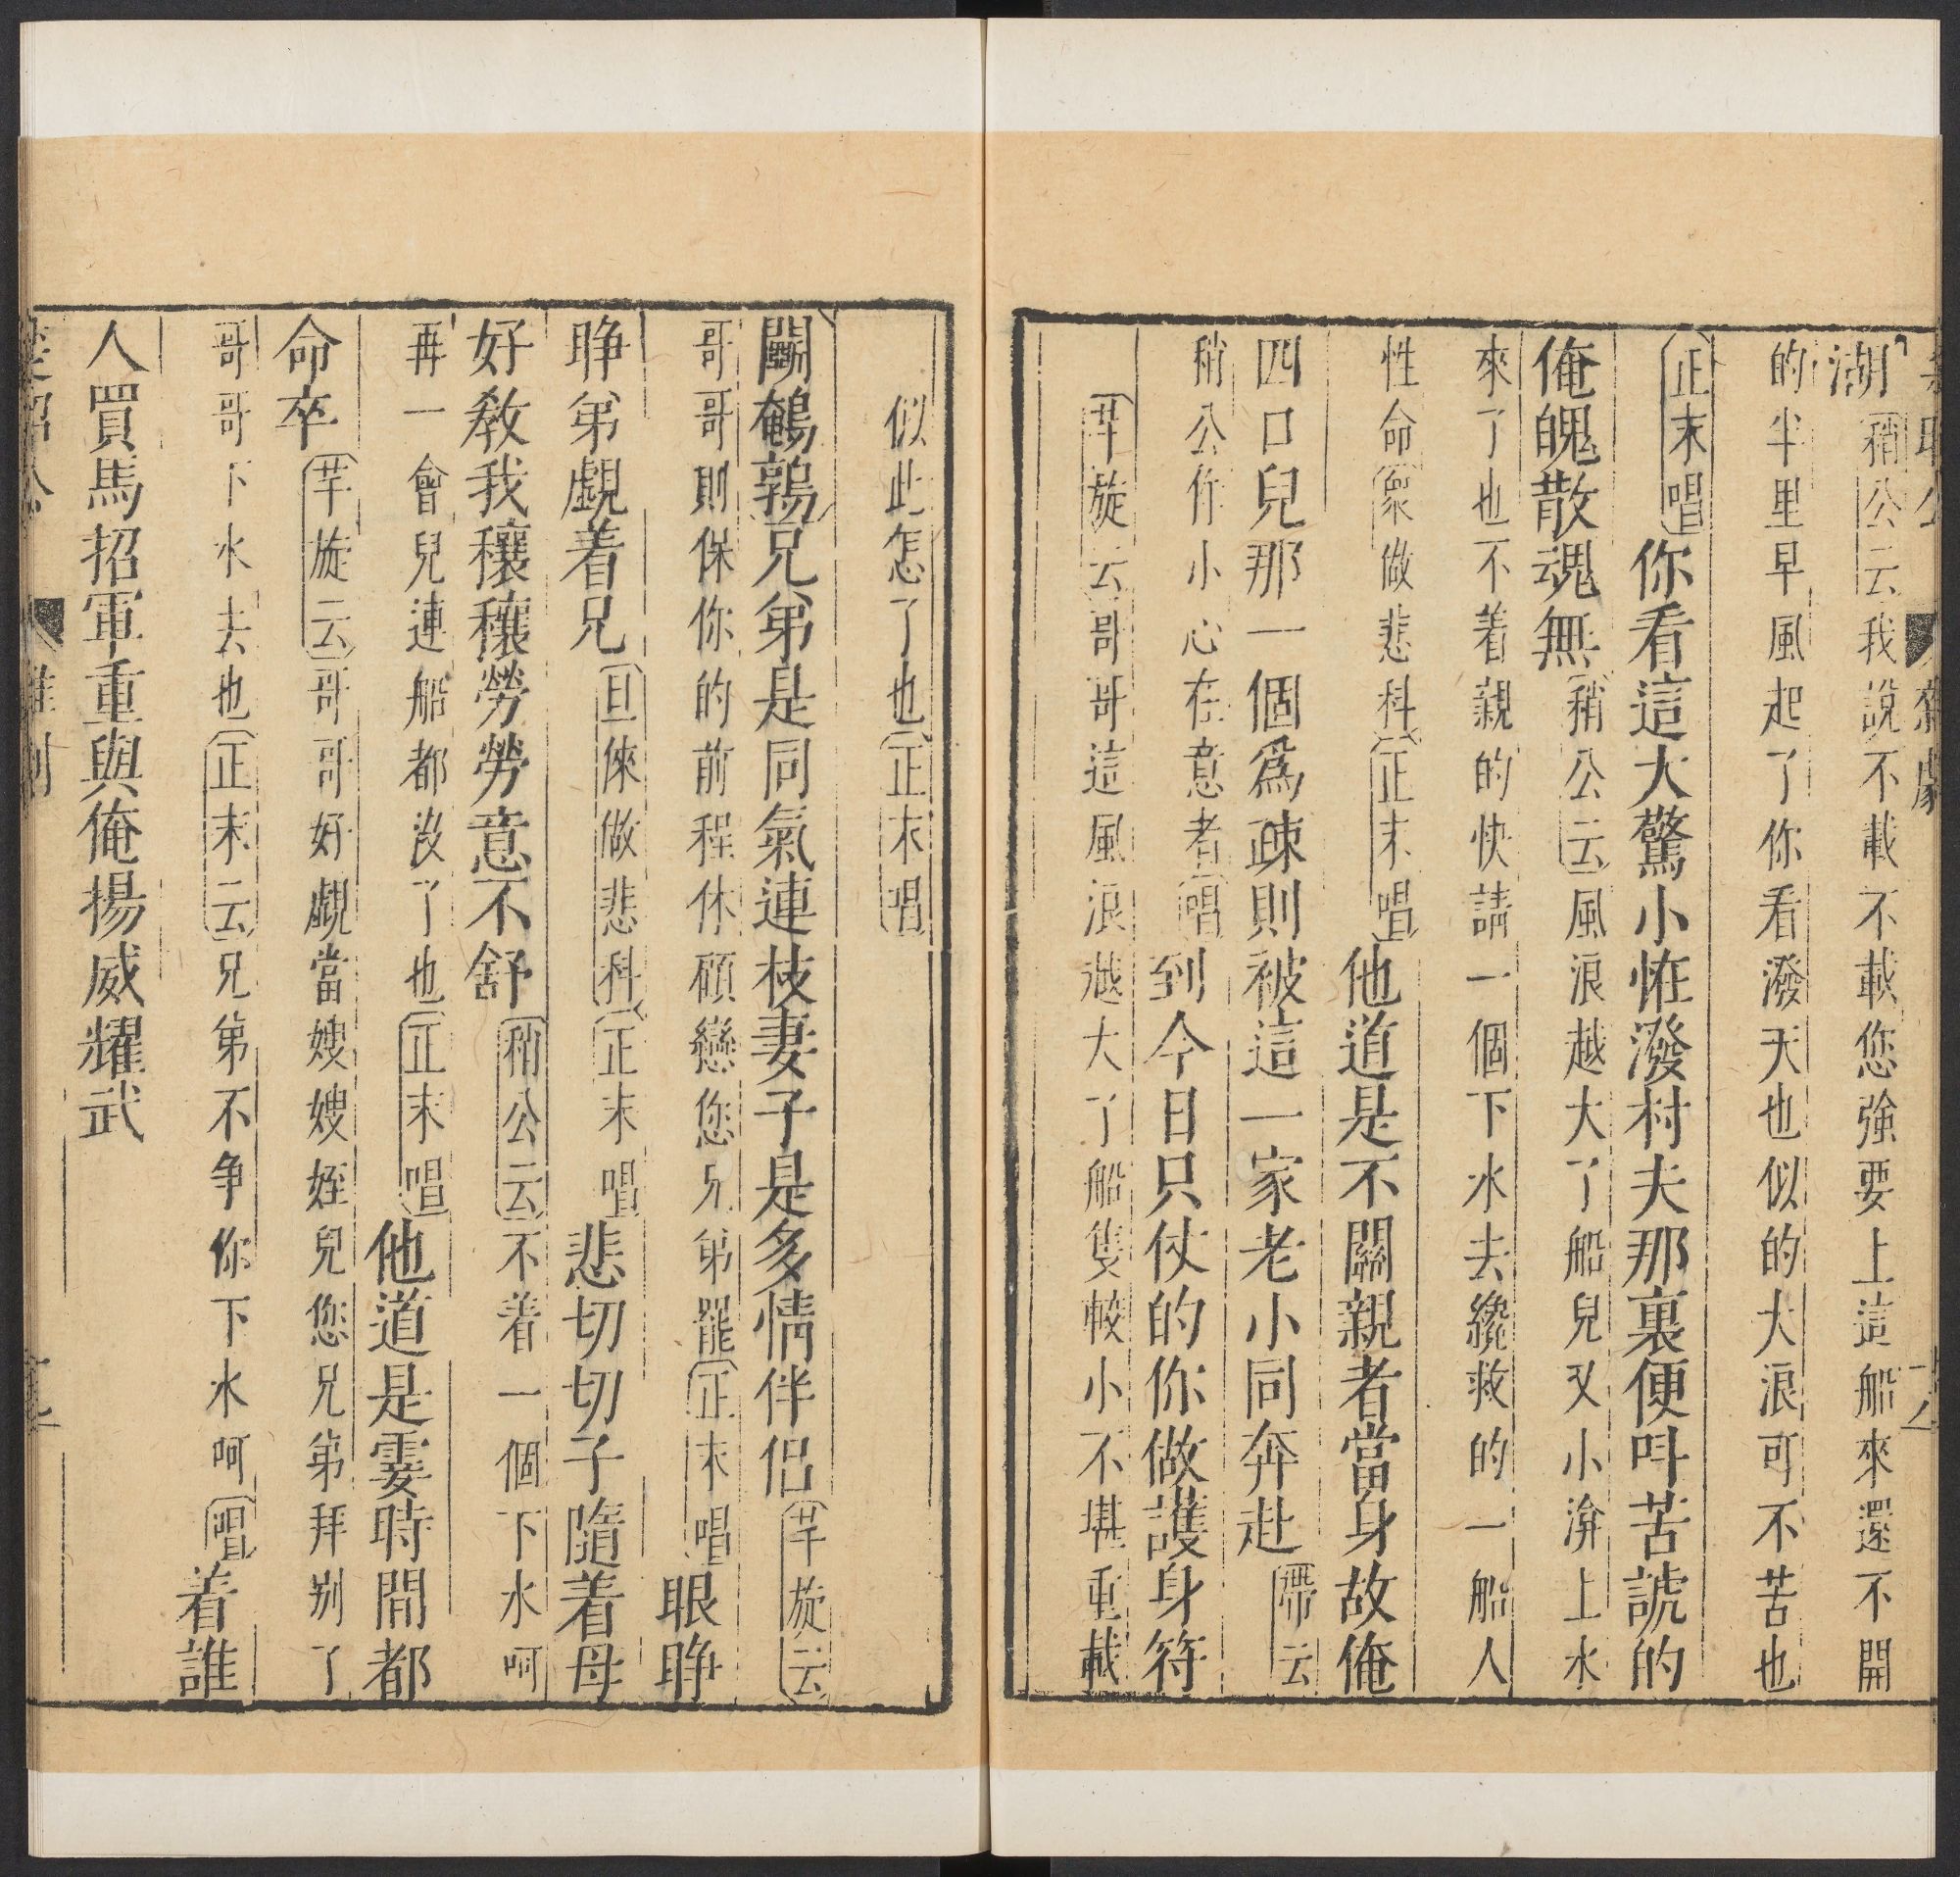 湖稍公云我說不載不載您強要上這船來還不開
的半里早風起了你看潑天也似的大浪可不苦也
正末唱你看這大驚小恠潑村夫那裏便呌苦諕的
俺魄散魂無稍公云風浪越大了船兒又小渰上水
來了也不着親的快請一個下水去纔救的一船人
性命衆做悲科正末唱他道是不關親者當身故俺
四口兒那一個爲疎則被這一家老小同奔赴帶云
稍公你小心在意者唱到今日只仗的你做護身符
芊旋云哥哥這風浪越大了船隻較小不堪重載
似此怎了也正末唱
鬭鵪鶉兄弟是同氣連枝妻子是多情伴侶芊旋云
哥哥則保你的前程休顧戀您兄弟罷正末唱眼睁
睁弟覷着兄旦倈做悲科正末唱悲切切子隨着母
好教我穰穰勞勞意不舒稍公云不着一個下水呵
再一會兒連船都沒了也正末唱他道是霎時間都
命卒芊旋云哥哥好覷當嫂嫂姪兒您兄弟拜别了
哥哥下水去也正末云兄弟不争你下水呵唱着誰
人買馬招軍重與俺揚威耀武
楚昭公 雜劇